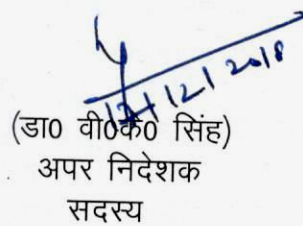 12/12/2018
(डा0 वी0के0 सिंह)
अपर निदेशक
सदस्य